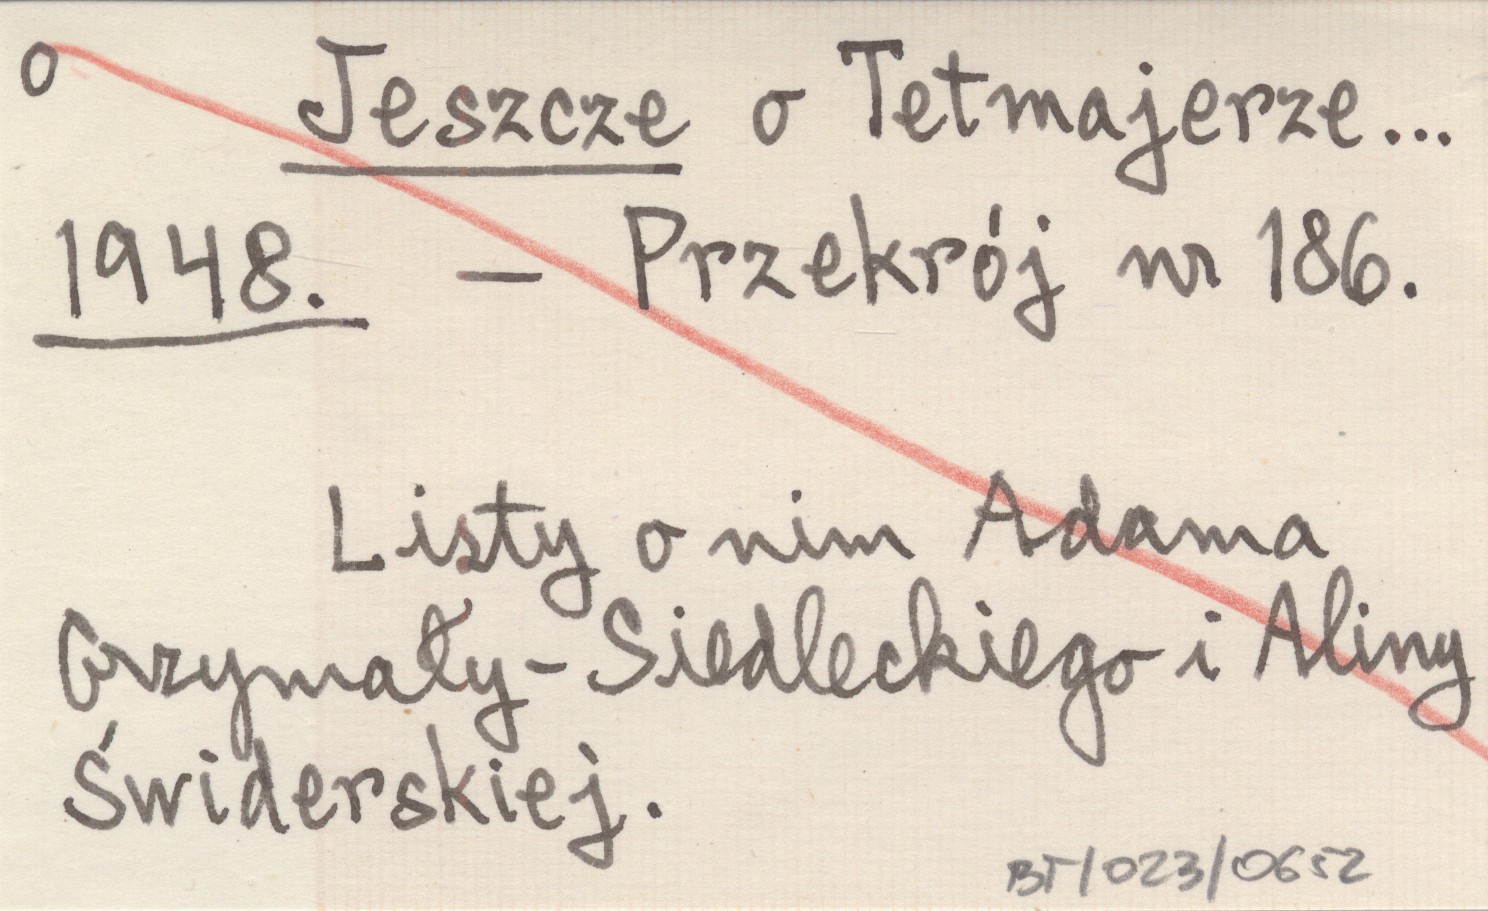 o Jeszcze o Tetmajerze...
1948. – Przekrój nr 186.
Listy o nim Adama
Grzymały-Siedleckiego i Aliny
Świderskiej.
BT/023/0652